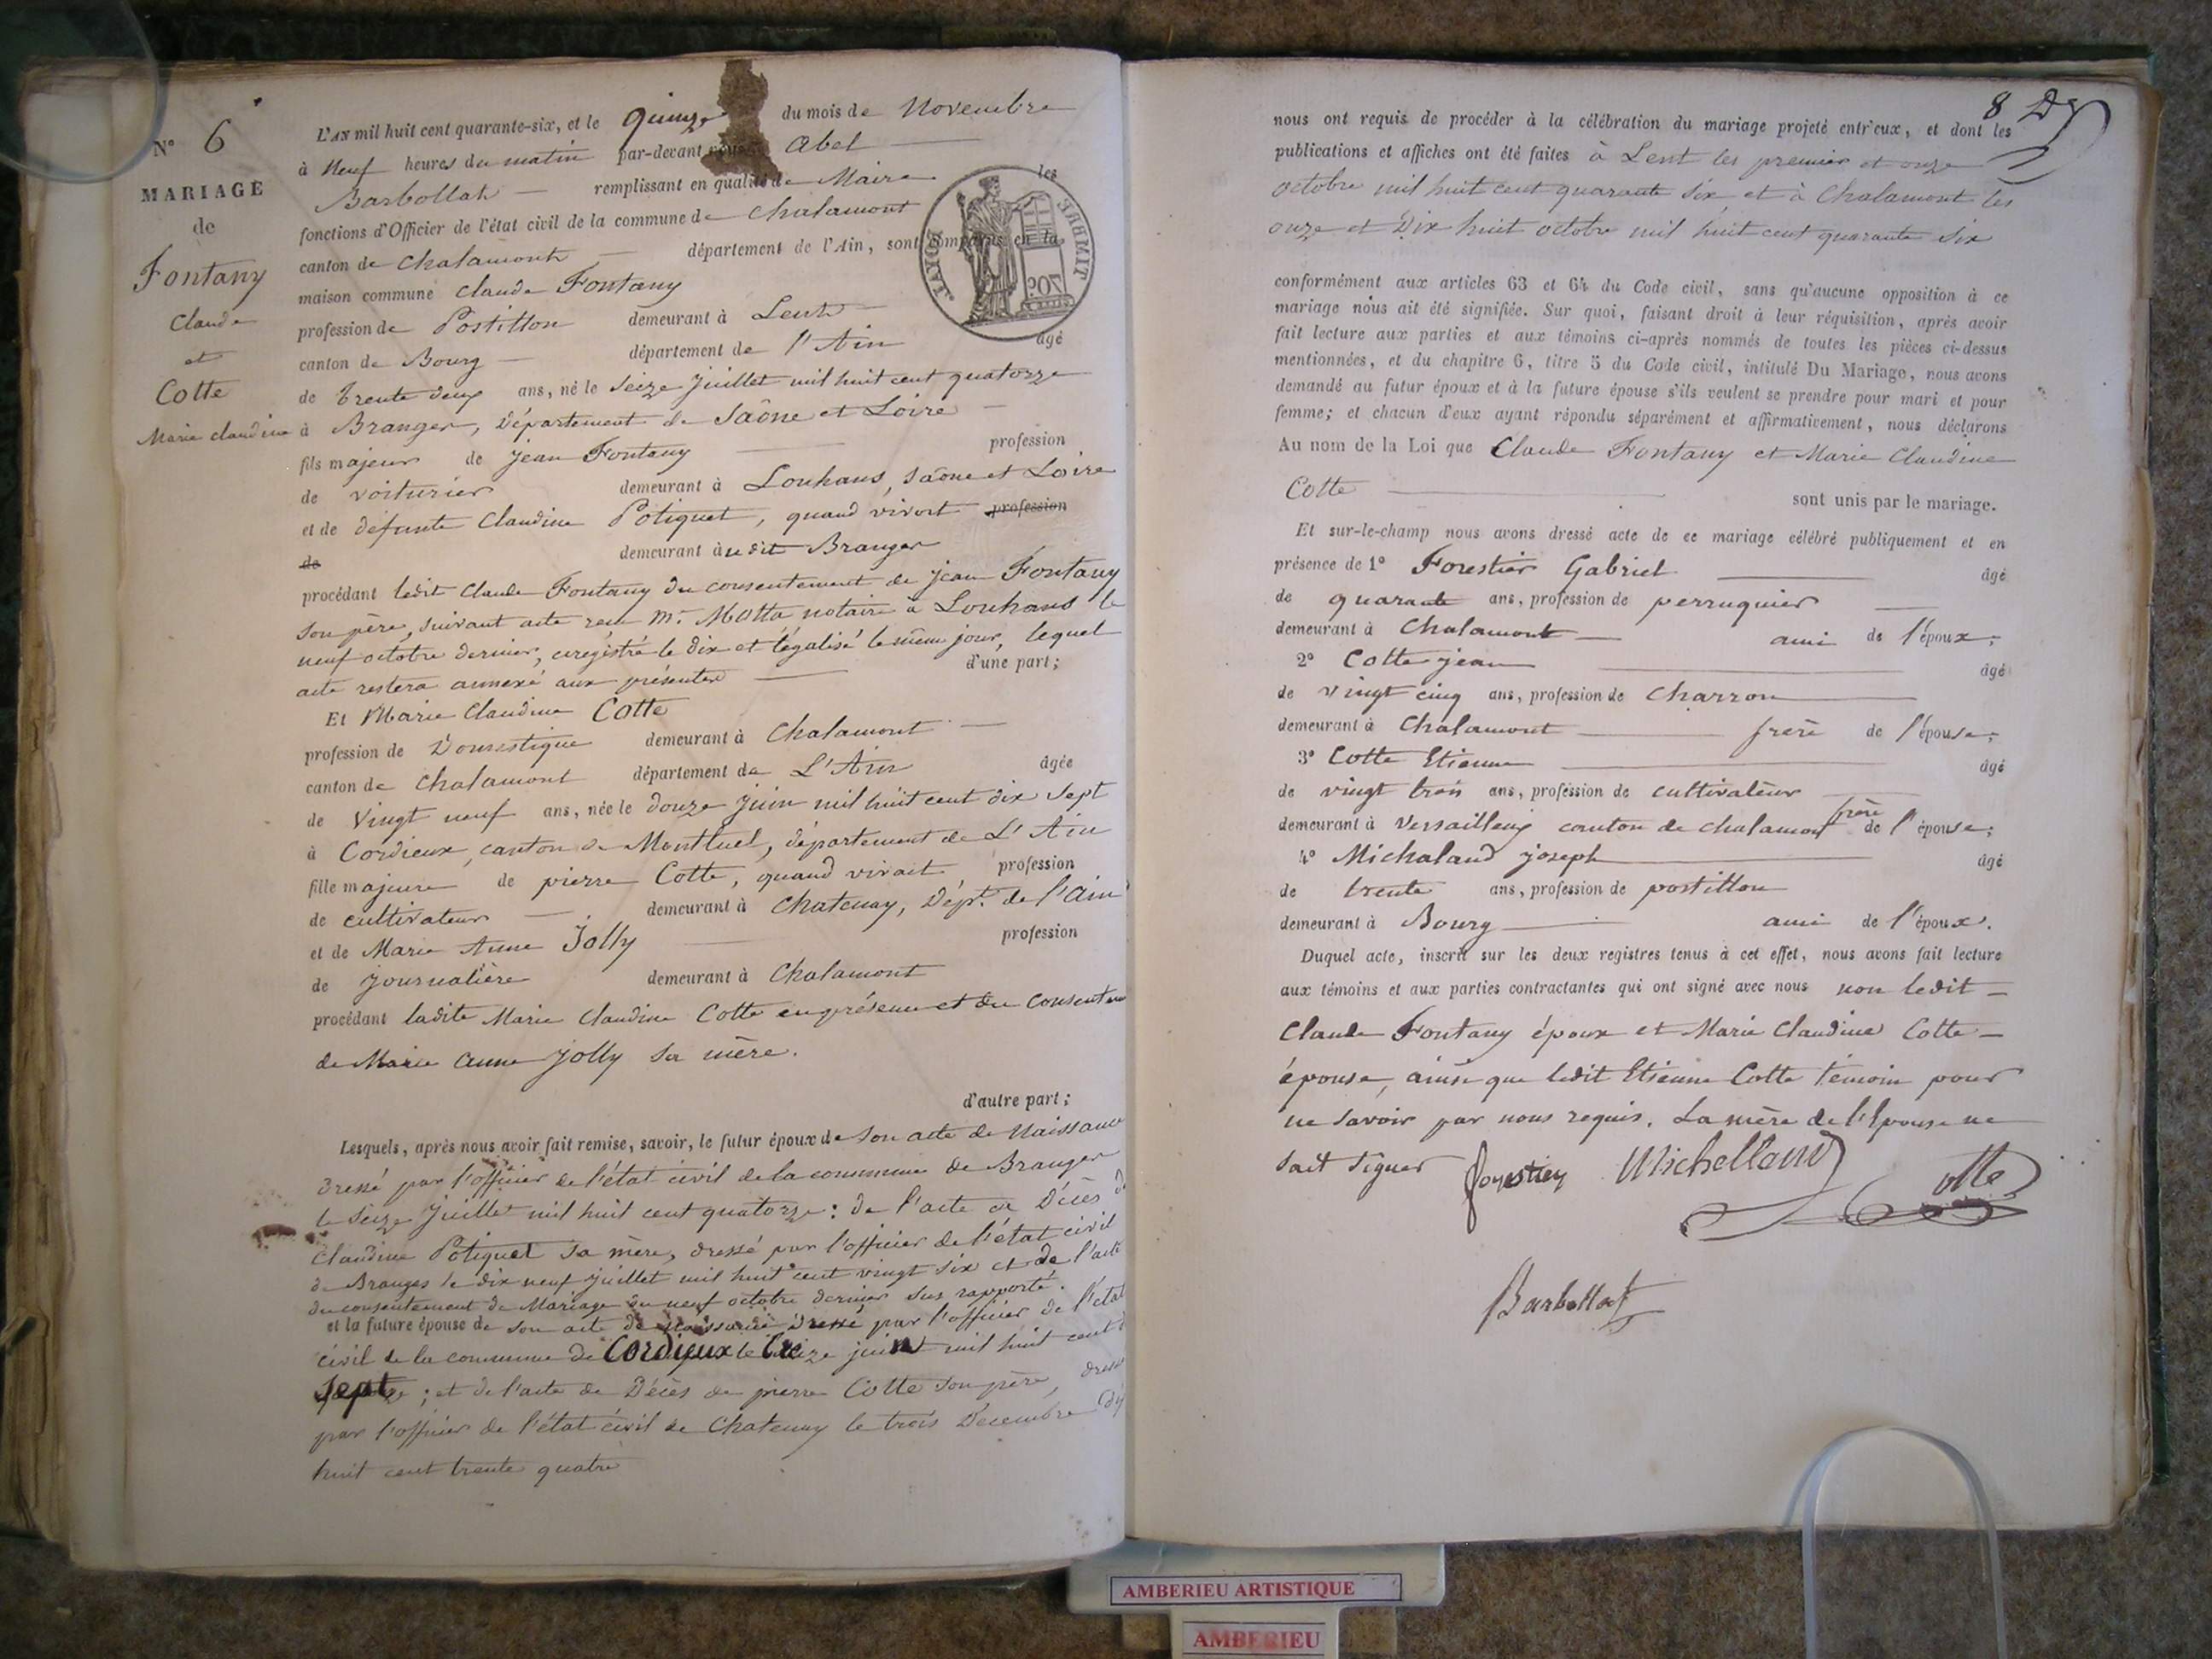 N° 6
MARIAGE
de
Fontany
Claude
et
Cotte
Marie Claudine
L'AN mil huit cent quarante-six, et le quinze du mois de Novembre
à Neuf heures du matin par-devant nous Abel
Barbollat remplissant en qualité de Maire les
fonctions d'Officier de l'état civil de la commune de Chalamont
canton de Chalamont département de l'Ain, sont comparus en la
maison commune Claude Fontany
profession de Postillon demeurant à Lent
canton de Bourg département de l'Ain âgé
de trente deux ans, né le seize Juillet mil huit cent quatorze
à Branges, Département de Saône et Loire
fils majeur de Jean Fontany profession
de voiturier demeurant à Louhans, Saône et Loire
et de défunte Claudine Potiquet, quand vivait profession
de demeurant à udit Branges
procédant ledit Claude Fontany du consentement de Jean Fontany
son père, suivant acte reçu Mr. Motta notaire à Louhans le
neuf octobre dernier, enregistré le dix et légalisé le même jour, lequel
acte restera annexé aux présentes d'une part;
Et Marie Claudine Cotte
profession de Domestique demeurant à Chalamont
canton de Chalamont département de L'Ain âgée
de Vingt neuf ans, née le douze juin mil huit cent dix sept
à Cordieux, canton de Montluel, département de L'Ain
fille majeure de pierre Cotte, quand vivait profession
de cultivateur demeurant à Chatenay, Dépt. de l'Ain
et de Marie Anne Jolly profession
de journalière demeurant à Chalamont
procédant ladite Marie Claudine Cotte en présence et du consentem
de Marie Anne Jolly sa mère.
d'autre part;
Lesquels, après nous avoir fait remise, savoir, le futur époux de son acte de Naissance
dressé par l'officier de l'état civil de la commune de Branges
le seize Juillet mil huit cent quatorze: de l'acte de Décès de
Claudine Potiquet sa mère, dressé par l'officier de l'état civil
de Branges le dix neuf juillet mil huit cent vingt six et de l'acte
du consentement de Mariage du neuf octobre dernier sus rapporté.
et la future épouse de son acte de naissance dressé par l'officier de l'état
civil de la commune de Cordieux le treize juin mil huit cent
sept; et de l'acte de Décès de pierre Cotte son père, dressé
par l'officier de l'état civil de Chatenay le trois Décembre
huit cent trente quatre
8
nous ont requis de procéder à la célébration du mariage projeté entr'eux, et dont les
publications et affiches ont été faites à Lent les premier et onze
octobre mil huit cent quarante six et à Chalamont les
onze et Dix huit octobre mil huit cent quarante six
conformément aux articles 63 et 64 du Code civil, sans qu'aucune opposition à ce
mariage nous ait été signifiée. Sur quoi, faisant droit à leur réquisition, après avoir
fait lecture aux parties et aux témoins ci-après nommés de toutes les pièces ci-dessus
mentionnées, et du chapitre 6, titre 5 du Code civil, intitulé Du Mariage, nous avons
demandé au futur époux et à la future épouse s'ils veulent se prendre pour mari et pour
femme; et chacun d'eux ayant répondu séparément et affirmativement, nous déclarons
Au nom de la Loi que Claude Fontany et Marie Claudine
Cotte sont unis par le mariage.
Et sur-le-champ nous avons dressé acte de ce mariage célébré publiquement et en
présence de 1° Forestier Gabriel âgé
de quarante ans, profession de perruquier
demeurant à Chalamont ami de l'époux;
2° Cotte jean âgé
de vingt cinq ans, profession de Charron
demeurant à Chalamont frère de l'épouse;
3° Cotte Etienne âgé
de vingt trois ans, profession de cultivateur
demeurant à Versailleux canton de Chalamont frère de l'épouse;
4° Michaland joseph âgé
de trente ans, profession de postillon
demeurant à Bourg ami de l'époux.
Duquel acte, inscrit sur les deux registres tenus à cet effet, nous avons fait lecture
aux témoins et aux parties contractantes qui ont signé avec nous non ledit
Claude Fontany époux et Marie Claudine Cotte
épouse, ainsi que ledit Etienne Cotte témoin pour
ne savoir par nous requis. La mère de l'Epouse ne
sait signer Forestier Michelland Cotte
Barbollat
TIMBRE ROYAL
70C
AMBERIEU ARTISTIQUE
AMBERIEU